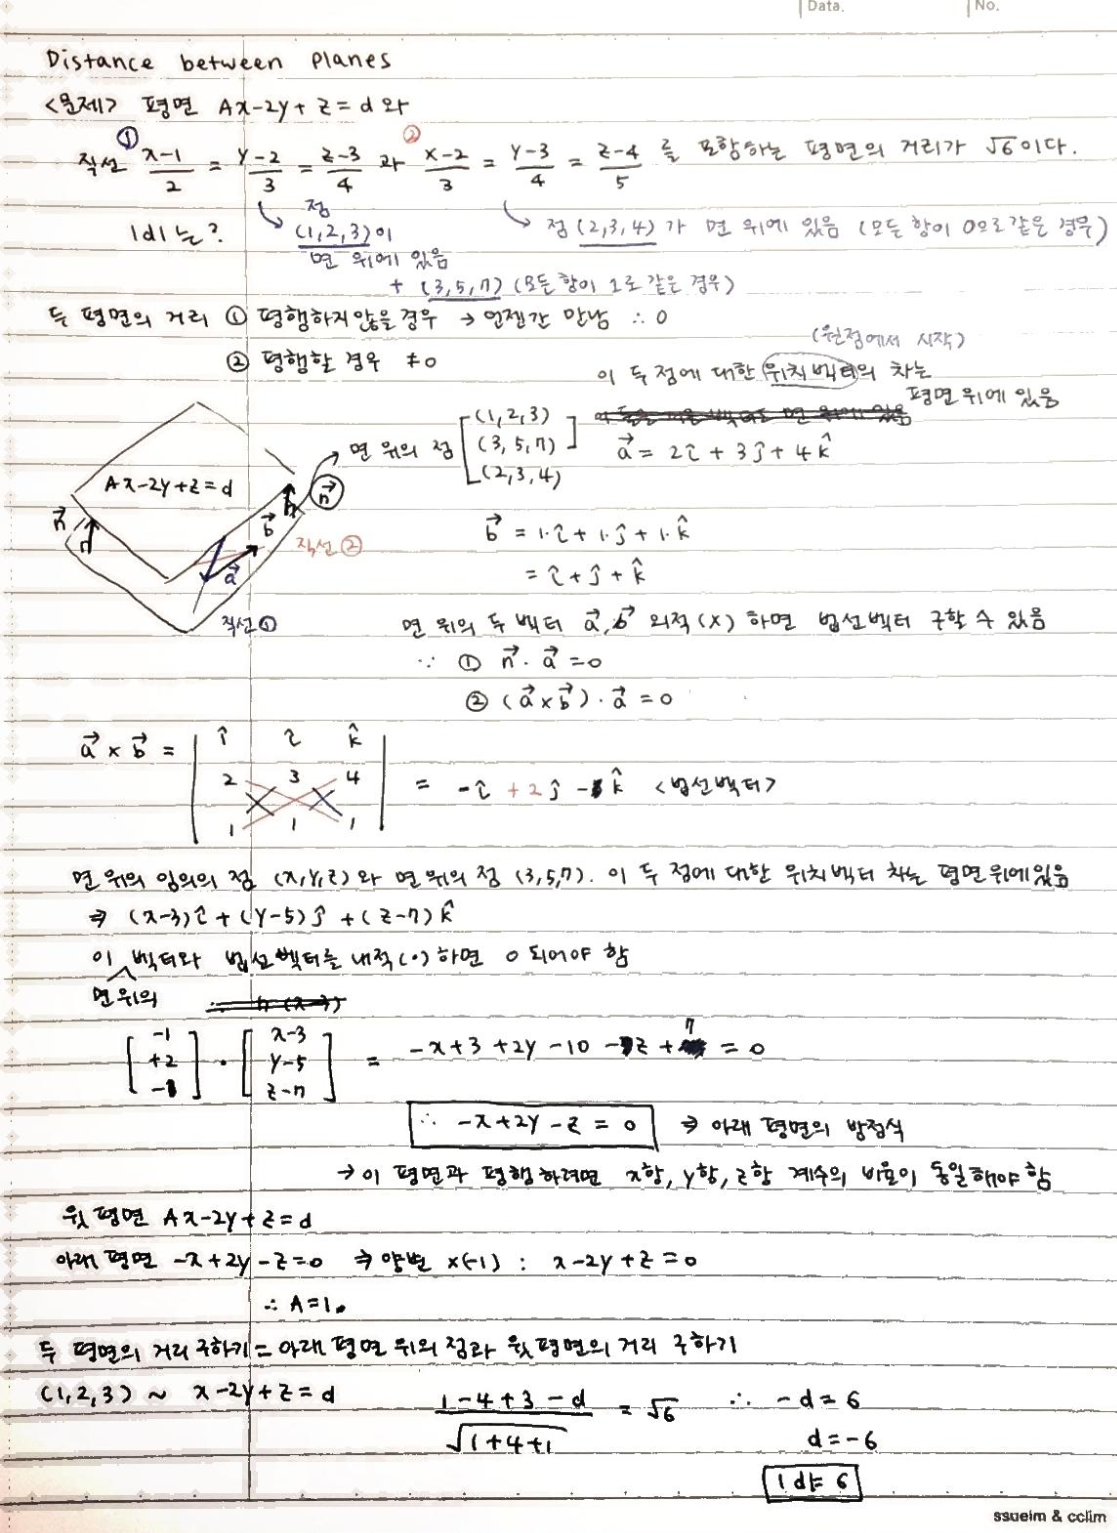 Data.
No.
Distance between planes
<문제> 평면 Ax-2y+z=d 와
① ②
직선 x-1/2 = y-2/3 = z-3/4 과 x-2/3 = y-3/4 = z-4/5 를 포함하는 평면의 거리가 √6이다.
|d|는?
점 (1,2,3)이 면 위에 있음
점 (2,3,4)가 면 위에 있음 (모든 항이 0으로 같은 경우)
+ (3,5,7) (모든 항이 1로 같은 경우)
두 평면의 거리 ① 평행하지않을 경우 → 언젠간 만남 ∴ 0
② 평행할 경우 ≠0
(원점에서 시작)
이 두 점에 대한 위치벡터의 차는
평면위에 있음
면 위의 점 [(1,2,3) (3,5,7)] (2,3,4)
a⃗ = 2î + 3ĵ + 4k̂
Ax-2y+z=d
n⃗
n⃗
b⃗
a⃗
직선②
직선①
b⃗ = 1·î + 1·ĵ + 1·k̂
= î + ĵ + k̂
면 위의 두 벡터 a⃗, b⃗ 외적(×) 하면 법선벡터 구할 수 있음
∵ ① n⃗·a⃗ =0
② (a⃗×b⃗)·a⃗ =0
a⃗ × b⃗ = | î î k̂
2 3 4
1 1 1 | = -î +2ĵ -k̂ <법선벡터>
면 위의 임의의 점 (x,y,z)와 면 위의 점 (3,5,7). 이 두 점에 대한 위치벡터 차는 평면위에있음
⇒ (x-3)î + (y-5)ĵ + (z-7)k̂
이 면위의 벡터와 법선벡터를 내적(·)하면 0 되어야 함
[-1 +2 -1] · [x-3 y-5 z-7] = -x+3+2y-10-z+7 = 0
∴ -x+2y-z = 0 ⇒ 아래 평면의 방정식
→ 이 평면과 평행하려면 x항, y항, z항 계수의 비율이 동일해야 함
윗 평면 Ax-2y+z=d
아래 평면 -x+2y-z=0 ⇒ 양변 ×(-1) : x-2y+z=0
∴ A=1.
두 평면의 거리 구하기 = 아래 평면 위의 점과 윗 평면의 거리 구하기
(1,2,3) ~ x-2y+z=d
1-4+3-d/√1+4+1 = √6 ∴ -d=6
d=-6
|d|=6
ssueim & cclim